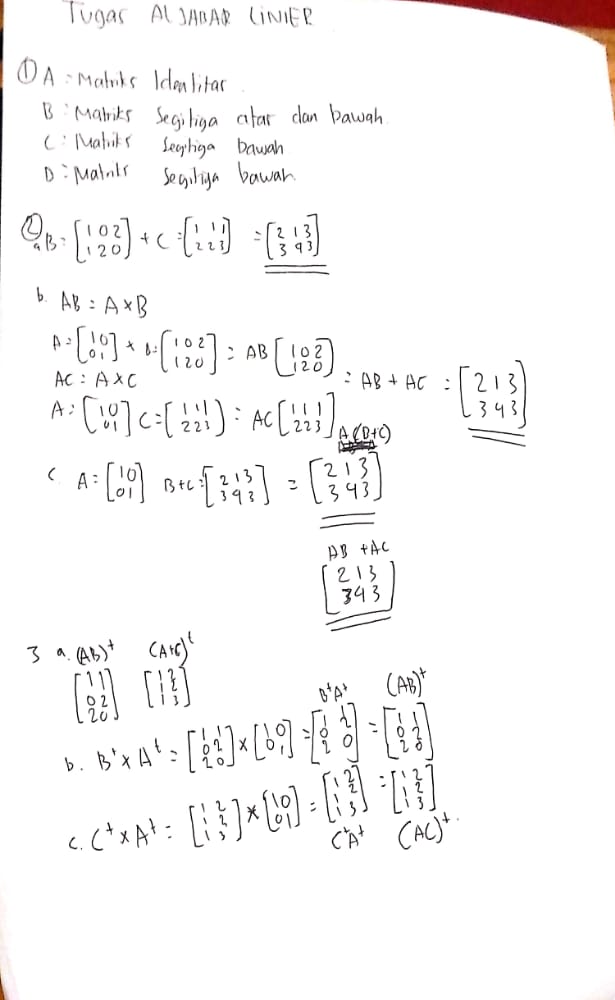 Tugas ALJABAR LINIER
① A : Matriks Identitas
B : Matriks Segitiga atas dan bawah
C : Matriks Segitiga bawah
D : Matriks Segitiga bawah
② a B = [1 0 2 / 1 2 0] + C = [1 1 1 / 2 2 3] = [2 1 3 / 3 4 3]
b. AB = A × B
A = [1 0 / 0 1] × B = [1 0 2 / 1 2 0] = AB [1 0 2 / 1 2 0]
AC = A × C = AB + AC = [2 1 3 / 3 4 3]
A = [1 0 / 0 1] C = [1 1 1 / 2 2 3] = AC [1 1 1 / 2 2 3]
A(B+C)
c. A = [1 0 / 0 1] B+C = [2 1 3 / 3 4 3] = [2 1 3 / 3 4 3]
AB + AC
[2 1 3 / 3 4 3]
3 a. (AB)t
[1 1 / 0 2 / 2 0] [1 2 / 1 2 / 1 3]
BtAt (AB)t
b. Bt × At = [1 1 / 0 2 / 2 0] × [1 0 / 0 1] = [1 1 / 0 2 / 2 0] = [1 1 / 0 2 / 2 0]
c. Ct × At = [1 2 / 1 2 / 1 3] × [1 0 / 0 1] = [1 2 / 1 2 / 1 3] = [1 2 / 1 2 / 1 3]
CtAt (AC)t.